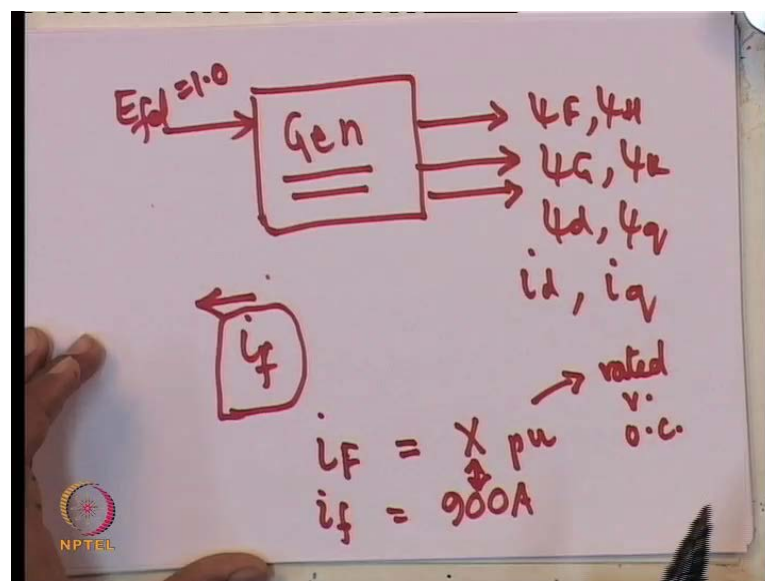 Efd = 1.0
Gen
ψF, ψH
ψG, ψK
ψd, ψq
id, iq
if
iF = X pu → rated
v.
o.c.
if = 900A
NPTEL